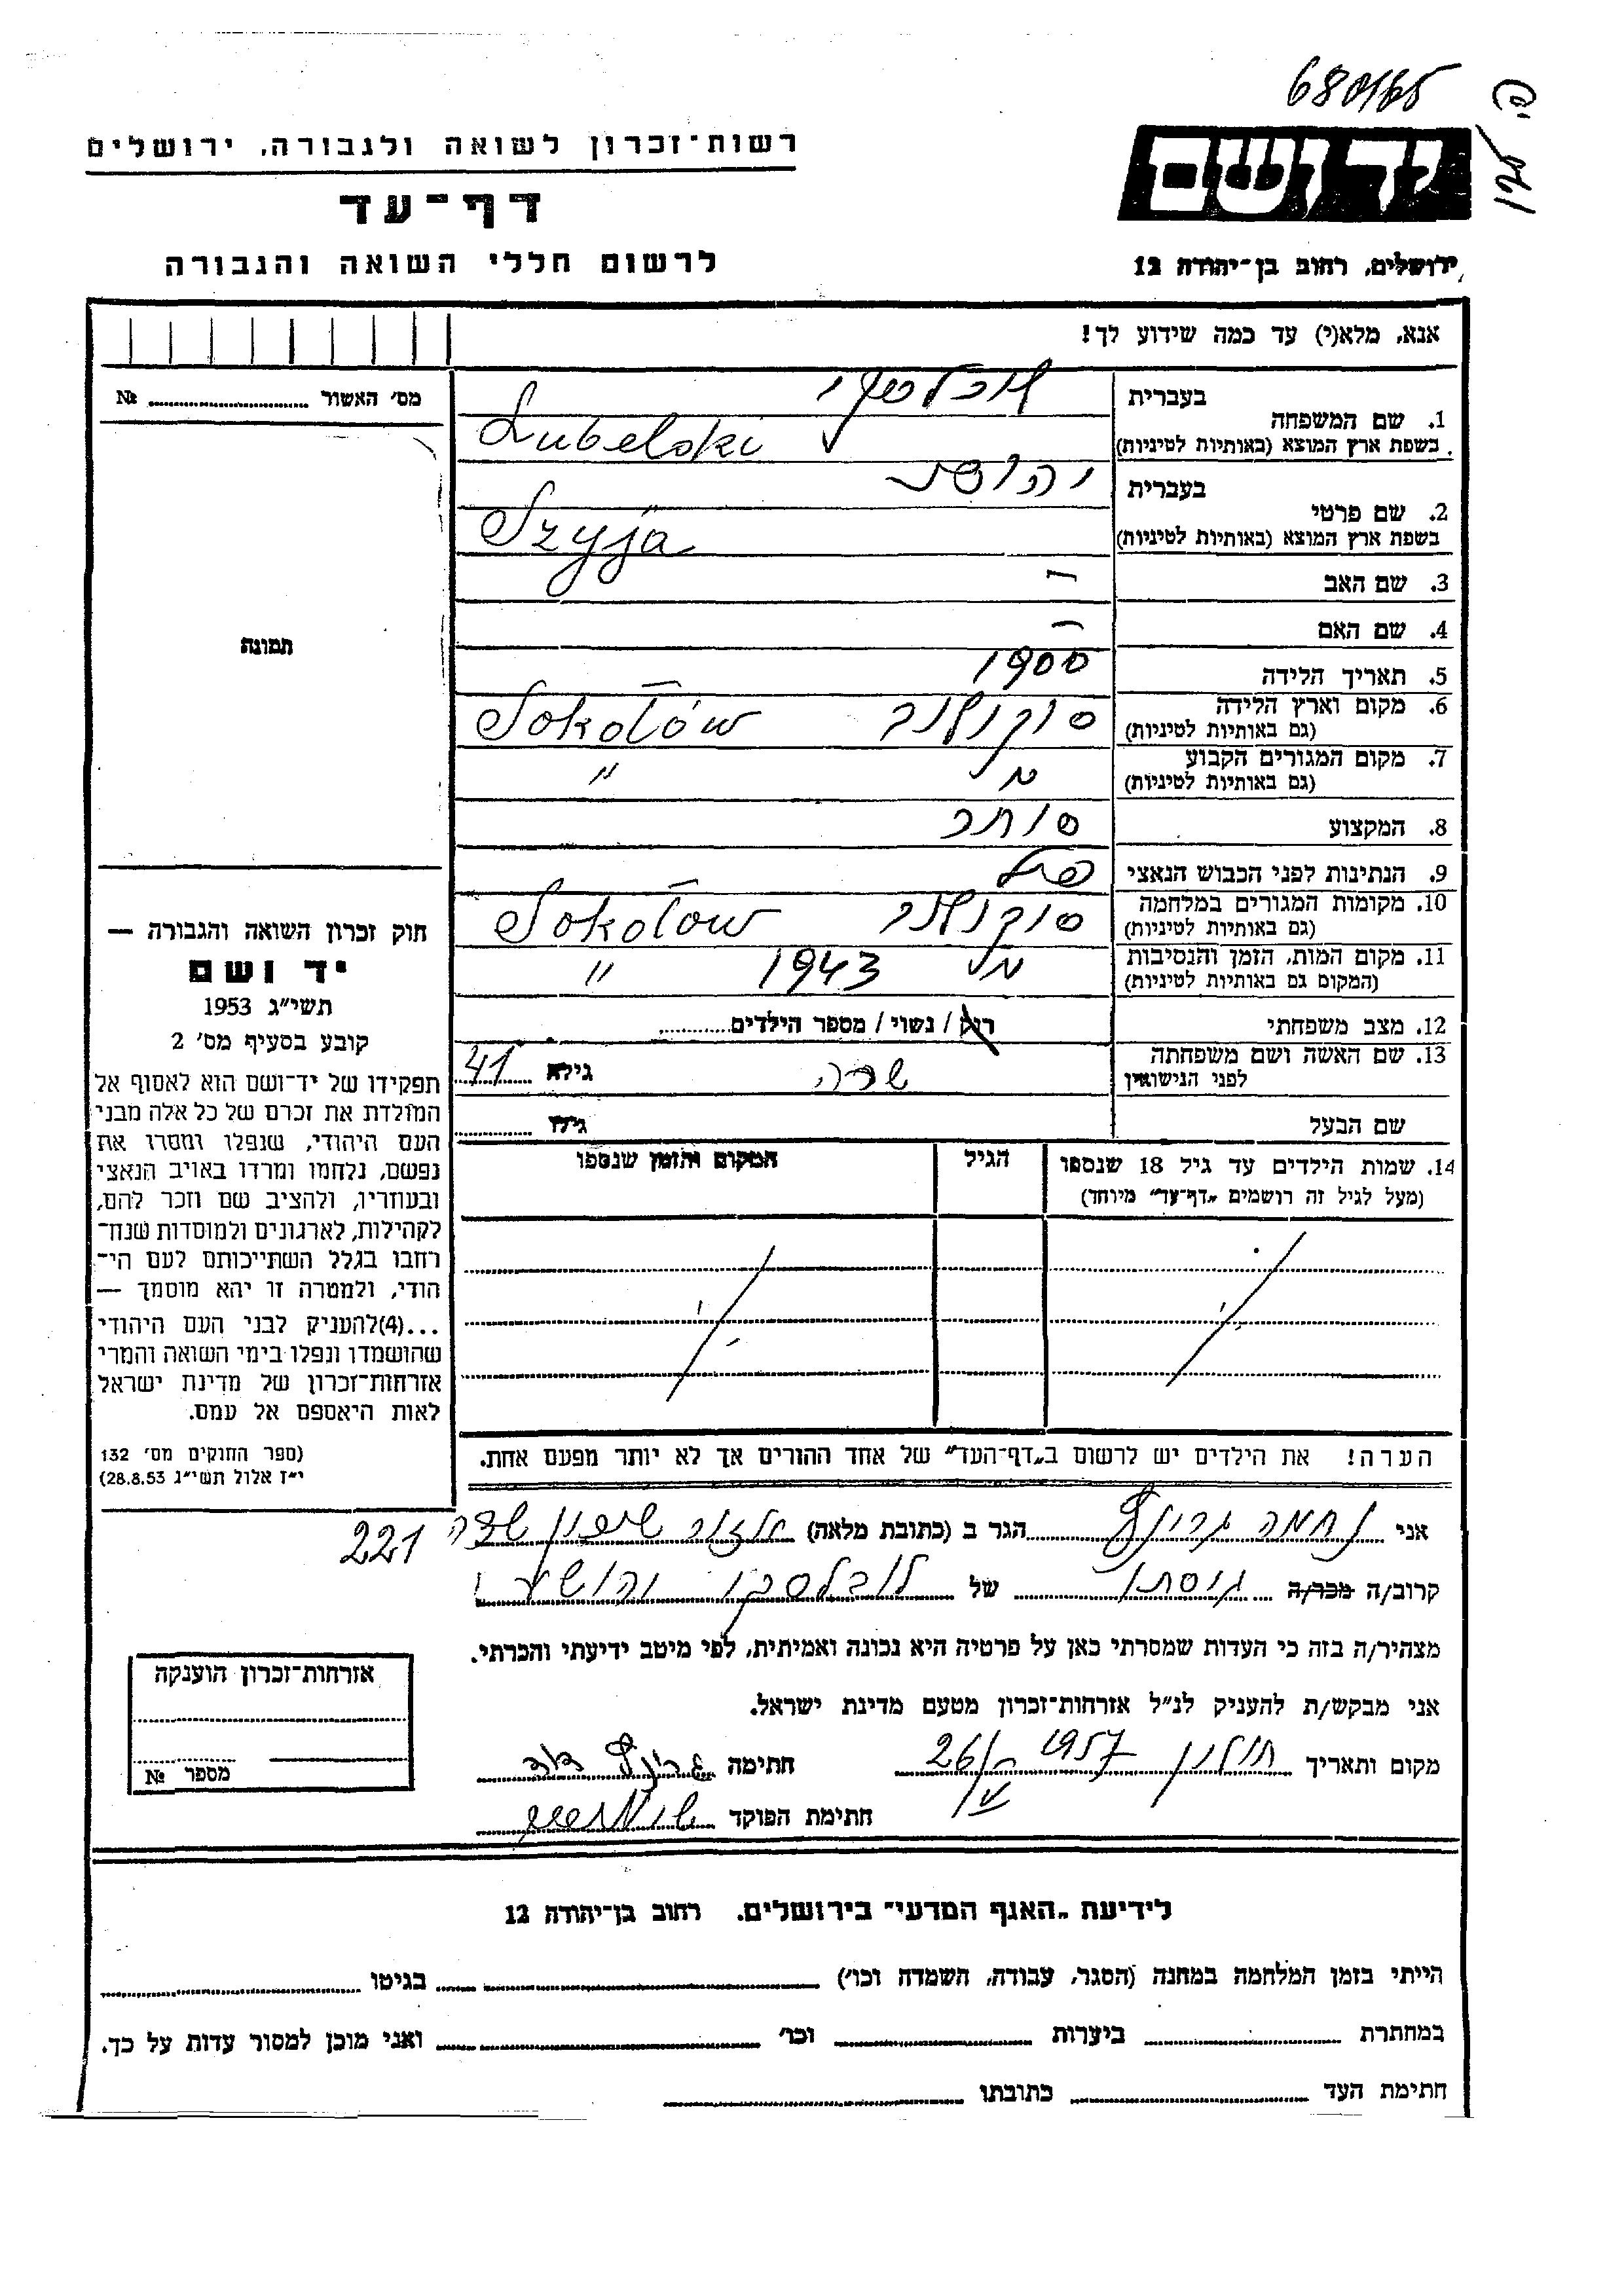 680/65
רשות־זכרון לשואה ולגבורה, ירושלים
דף־עד
לרשום חללי השואה והגבורה
יד ושם
ירושלים, רחוב בן־יהודה 12
אנא, מלא(י) עד כמה שידוע לך!
מס' האשור № 
תמונה
חוק זכרון השואה והגבורה —
יד ושם
תשי״ג 1953
קובע בסעיף מס' 2
תפקידו של יד־ושם הוא לאסוף אל
המולדת את זכרם של כל אלה מבני
העם היהודי, שנפלו ומסרו את
נפשם, נלחמו ומרדו באויב הנאצי
ובעוזריו, ולהציב שם וזכר להם,
לקהילות, לארגונים ולמוסדות שנח־
רחבו בגלל השתייכותם לעם הי־
הודי, ולמטרה זו יהא מוסמך —
...(4)להעניק לבני העם היהודי
שהושמדו ונפלו בימי השואה והמרי
אזרחות־זכרון של מדינת ישראל
לאות היאספם אל עמם.
(ספר החוקים מס' 132
י״ז אלול תשי״ג 28.8.53)
1. שם המשפחה
בעברית לובלסקי
בשפת ארץ המוצא (באותיות לטיניות) Lubelski
2. שם פרטי
בעברית יהושע
בשפת ארץ המוצא (באותיות לטיניות) Szyja
3. שם האב —
4. שם האם —
5. תאריך הלידה 1900
6. מקום וארץ הלידה
(גם באותיות לטיניות) סוקולוב Sokołów
7. מקום המגורים הקבוע
(גם באותיות לטיניות) "
8. המקצוע סוחר
9. הנתינות לפני הכבוש הנאצי פול
10. מקומות המגורים במלחמה
(גם באותיות לטיניות) סוקולוב Sokołow
11. מקום המות, הזמן והנסיבות
(המקום גם באותיות לטיניות) 1943 "
12. מצב משפחתי רוק / נשוי / מספר הילדים
13. שם האשה ושם משפחתה
לפני הנישואין שרה גילא 41
שם הבעל גילו
14. שמות הילדים עד גיל 18 שנספו
(מעל לגיל זה רושמים „דף־עד״ מיוחד)
הגיל
המקום והזמן שנספו
הערה! את הילדים יש לרשום ב„דף־העד״ של אחד ההורים אך לא יותר מפעם אחת.
אני נחמה הגר ב (כתובת מלאה) אזור שיכון 221
קרוב/ה מכר/ה גיסתו של לובלסקי יהושע
מצהיר/ה בזה כי העדות שמסרתי כאן על פרטיה היא נכונה ואמיתית, לפי מיטב ידיעתי והכרתי.
אני מבקש/ת להעניק לנ״ל אזרחות־זכרון מטעם מדינת ישראל.
מקום ותאריך חולון 1957 26/V חתימה
חתימת הפוקד
אזרחות־זכרון הוענקה
מספר №
לידיעת „האגף המדעי״ בירושלים, רחוב בן־יהודה 12
הייתי בזמן המלחמה במחנה (הסגר, עבודה, השמדה וכו') בגיטו
במחתרת ביערות וכו' ואני מוכן למסור עדות על כך.
חתימת העד כתובתו